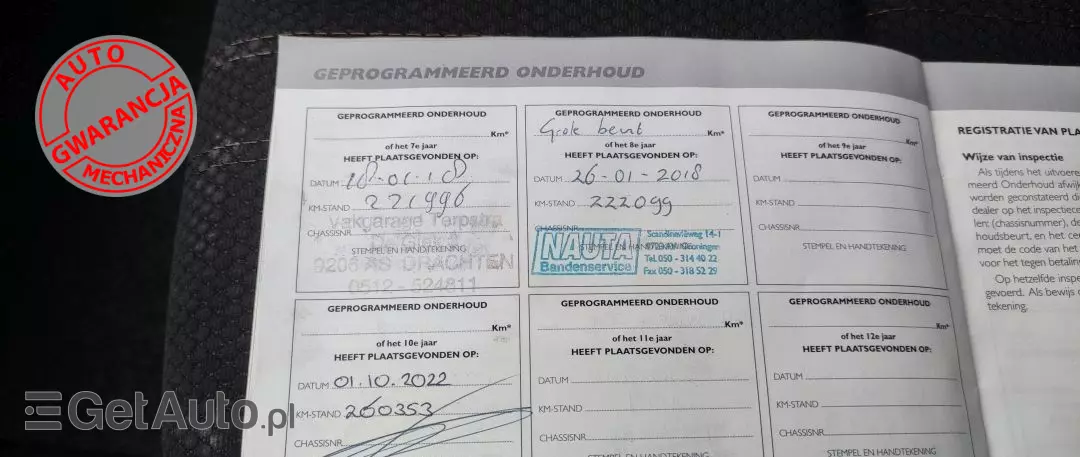 AUTO
GWARANCJA
MECHANICZNA
GEPROGRAMMEERD ONDERHOUD
GEPROGRAMMEERD ONDERHOUD
Km*
of het 7e jaar
HEEFT PLAATSGEVONDEN OP:
DATUM 18-01-18
KM-STAND 221996
CHASSISNR.
Vakgarage Terpstra
STEMPEL EN HANDTEKENING
9206 AS DRACHTEN
0512 - 524811
GEPROGRAMMEERD ONDERHOUD
Grote beurt Km*
of het 8e jaar
HEEFT PLAATSGEVONDEN OP:
DATUM 26-01-2018
KM-STAND 222099
CHASSISNR.
STEMPEL EN HANDTEKENING
NAUTA
Bandenservice
Scandinaviëweg 14-1
Groningen
Tel. 050 - 314 40 22
Fax 050 - 318 52 29
GEPROGRAMMEERD ONDERHOUD
Km*
of het 9e jaar
HEEFT PLAATSGEVONDEN OP:
DATUM
KM-STAND
CHASSISNR.
STEMPEL EN HANDTEKENING
GEPROGRAMMEERD ONDERHOUD
Km*
of het 10e jaar
HEEFT PLAATSGEVONDEN OP:
DATUM 01.10.2022
KM-STAND 260353
CHASSISNR.
GEPROGRAMMEERD ONDERHOUD
Km*
of het 11e jaar
HEEFT PLAATSGEVONDEN OP:
DATUM
KM-STAND
CHASSISNR.
STEMPEL EN HANDTEKENING
GEPROGRAMMEERD ONDERHOUD
Km*
of het 12e jaar
HEEFT PLAATSGEVONDEN OP:
DATUM
KM-STAND
CHASSISNR.
STEMPEL EN HANDTEKENING
REGISTRATIE VAN PLA
Wijze van inspectie
Als tijdens het uitvoere
meerd Onderhoud afwijk
worden geconstateerd die
dealer op het inspectiece
len: (chassisnummer), de
houdsbeurt, en het cer
moet de code van het
voor het tegen betalin
Op hetzelfde inspe
gevoerd. Als bewijs d
tekening.
GetAuto.pl